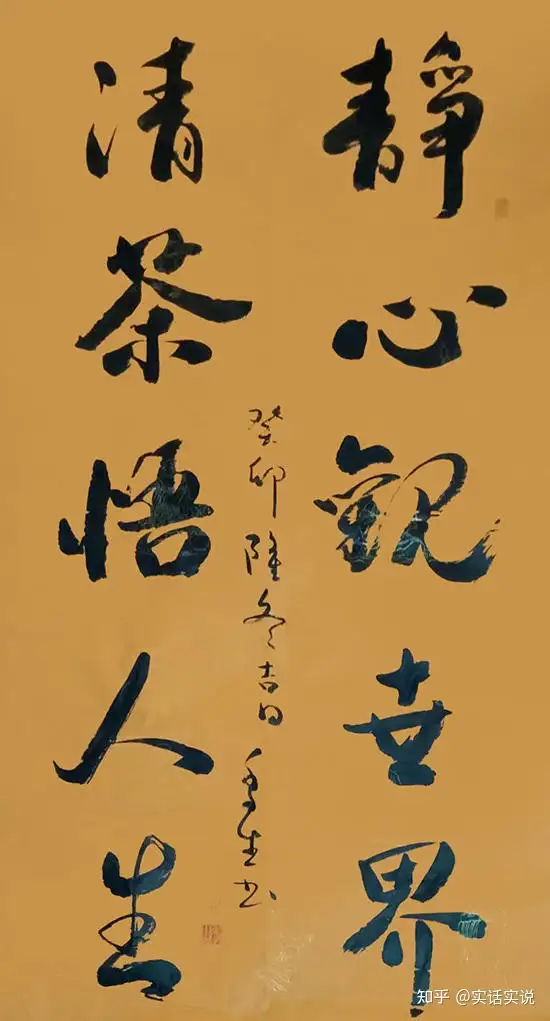 靜心觀世界
清茶悟人生
癸卯隆冬吉日
生书
知乎 @实话实说